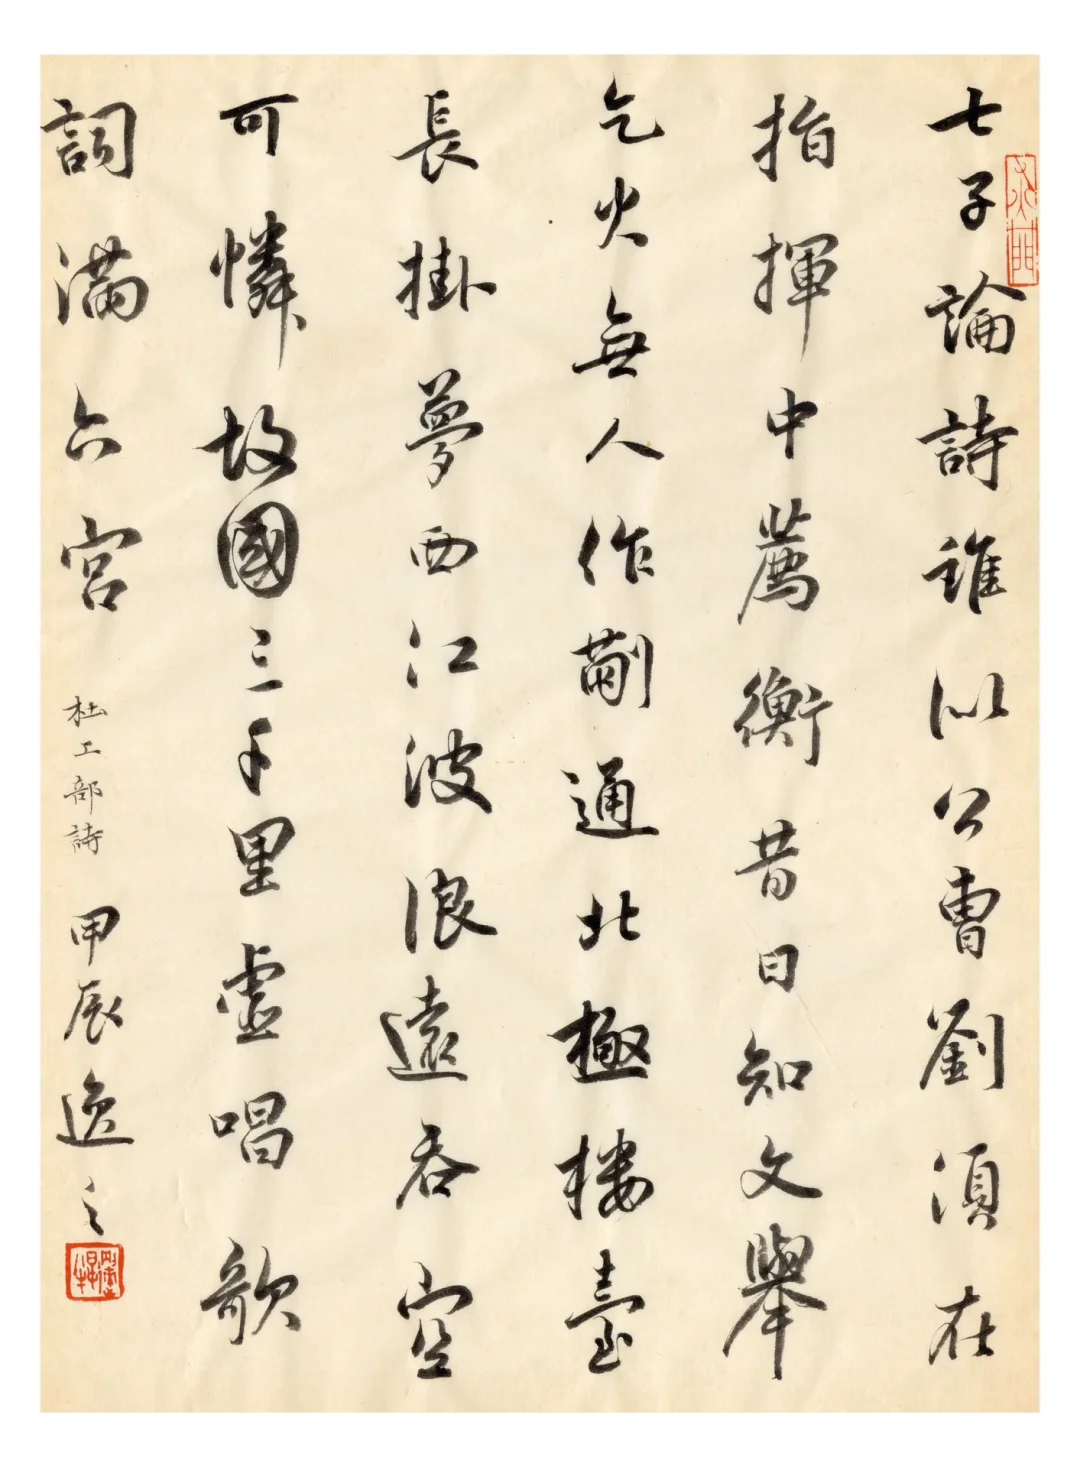 七子論詩誰似公曹劉須在
指揮中薦衡昔日知文舉
乞火無人作蒯通北極樓臺
長掛夢西江波浪遠吞空
可憐故國三千里虛唱歌
詞滿六宮 杜工部詩 甲辰 逸之